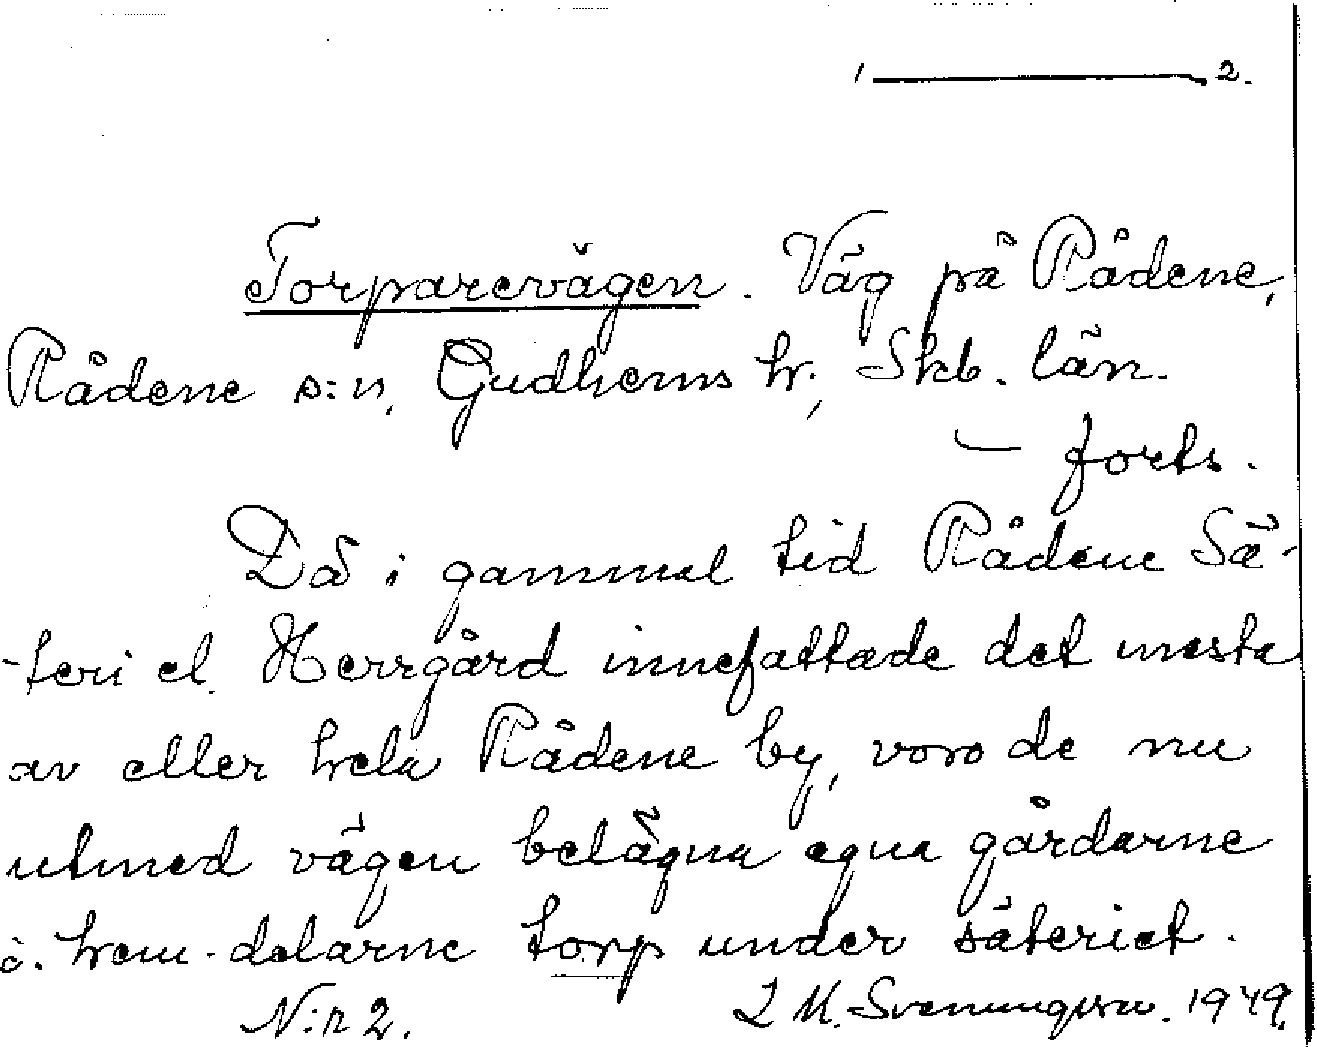 1 — 2.
Torparevägen. Väg på Rådene,
Rådene s:n, Gudhems hr, Skb. län.
— forts.
Då i gammal tid Rådene Sä-
-teri el. Herrgård innefattade det mesta
av eller hela Rådene by, voro de nu
utmed vägen belägna egna gårdarne
o. hem-delarne torp under säteriet.
N:r 2. L M. Svenungsson. 1949.